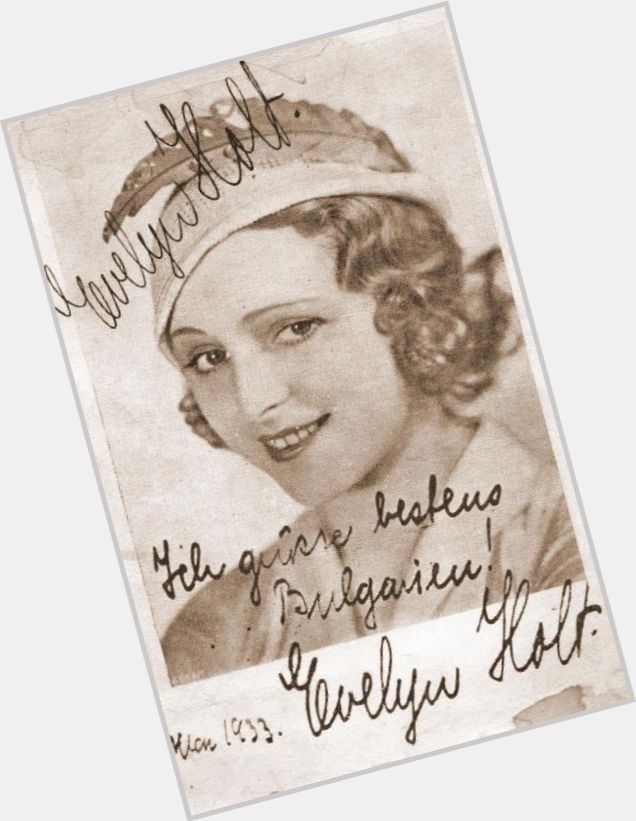 Evelyn Holt.
Ich grüsse bestens
Bulgarien!
Evelyn Holt.
1933.